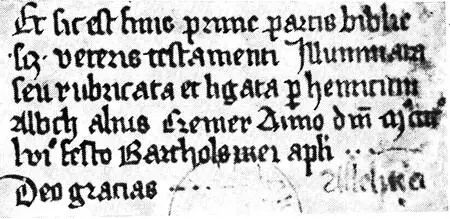 Et sic est finis prime partis biblie
·scz· veteris testamenti Illuminata
seu rubricata et ligata p henricum
Albch alius Cremer Anno dm mͦccccͦ
lvi festo Bartholomei apli
Deo gracias
Alleluja